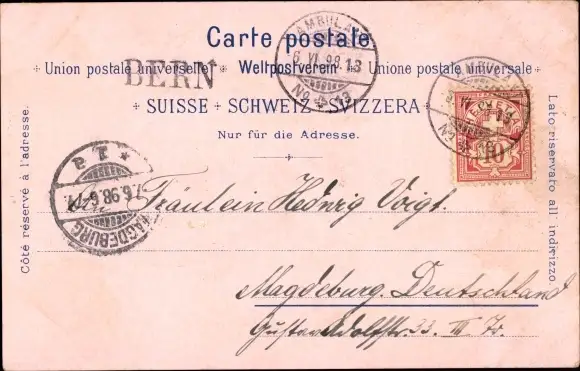 Carte postale
Union postale universelle Weltpostverein Unione postale universale
BERN
SUISSE SCHWEIZ SVIZZERA
Nur für die Adresse.
Côté réservé à l'adresse.
Lato riservato all indirizzo
AMBULANT
6. VI. 98. 13
No
AMBULANT
No
HELVETIA
10
MAGDEBURG
7.6.98
* 1 a
Fräulein Hedwig Voigt.
Magdeburg. Deutschland
Gustav Adolfstr. 33. III